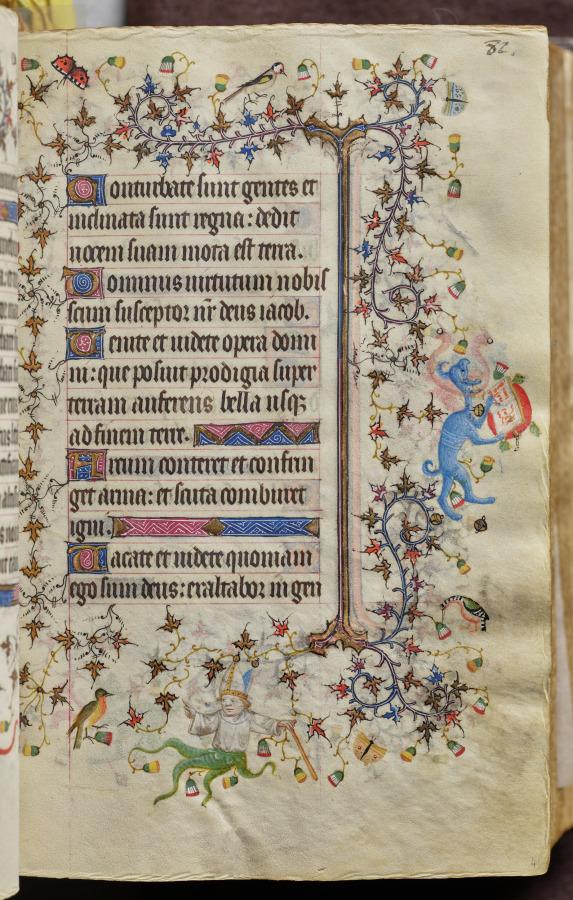 82.
Conturbate sunt gentes et
inclinata sunt regna: dedit
uocem suam mota est terra.
Dominus uirtutum nobis
scum susceptor nr̄ deus iacob.
Uenite et uidete opera domi
ni: que posuit prodigia super
terram auferens bella usq̄
ad finem terre.
Arcum conteret et confrin
get arma: et scuta comburet
igni.
Uacate et uidete quoniam
ego sum deus: exaltabor in gen